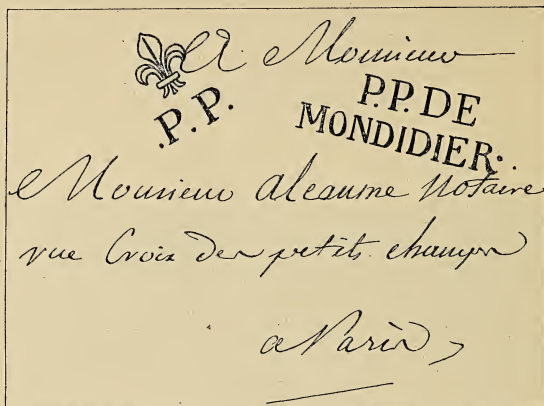 A Monsieur
.P.P.
P.P. DE
MONDIDIER.
Monsieur aleaume Notaire
rue Croix des petits champs
a Paris